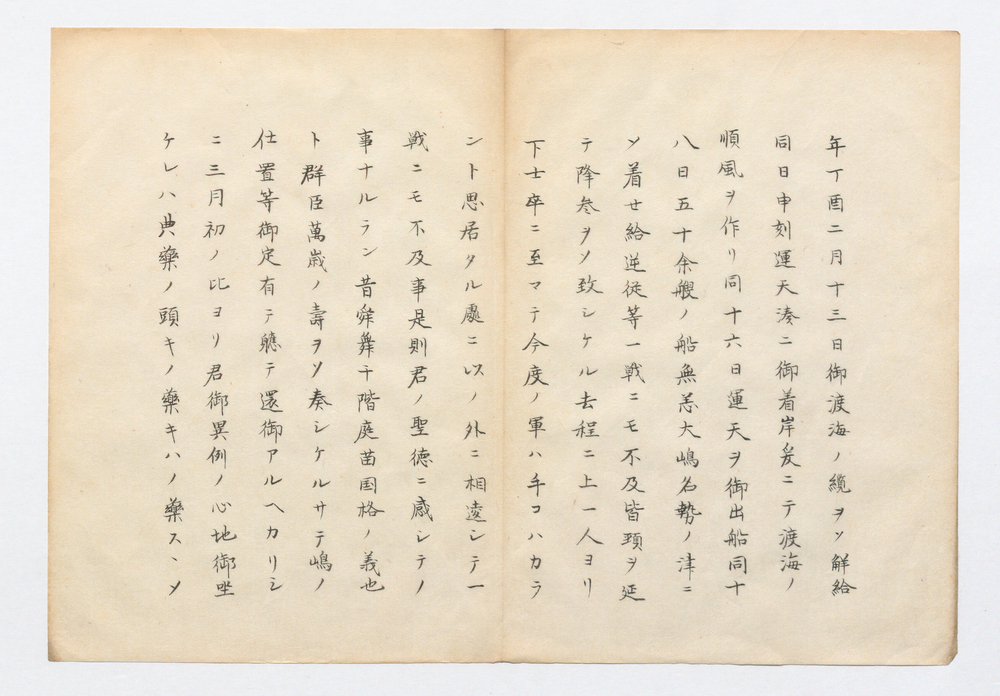 年丁酉二月十三日御渡海ノ纜ヲソ解給
同日申刻運天湊ニ御着岸爰ニテ渡海ノ
順風ヲ作リ同十六日運天ヲ御出船同十
八日五十余艘ノ船無恙大嶋名勢ノ津ニ
ソ着せ給逆従等一戦ニモ不及皆頚ヲ延
テ降参ヲソ致シケル去程ニ上一人ヨリ
下士卒ニ至マテ今度ノ軍ハ手コハカラ
ント思居タル處ニ以ノ外ニ相違シテ一
戦ニモ不及事是則君ノ聖徳ニ感シテノ
事ナルラン昔舜舞干階庭苗国格ノ義也
ト群臣萬歳ノ壽ヲソ奏シケルサテ嶋ノ
仕置等御定有テ軈テ還御アルヘカリシ
ニ三月初ノ比ヨリ君御異例ノ心地御坐
ケレハ典藥ノ頭キノ藥キハノ藥スヽメ